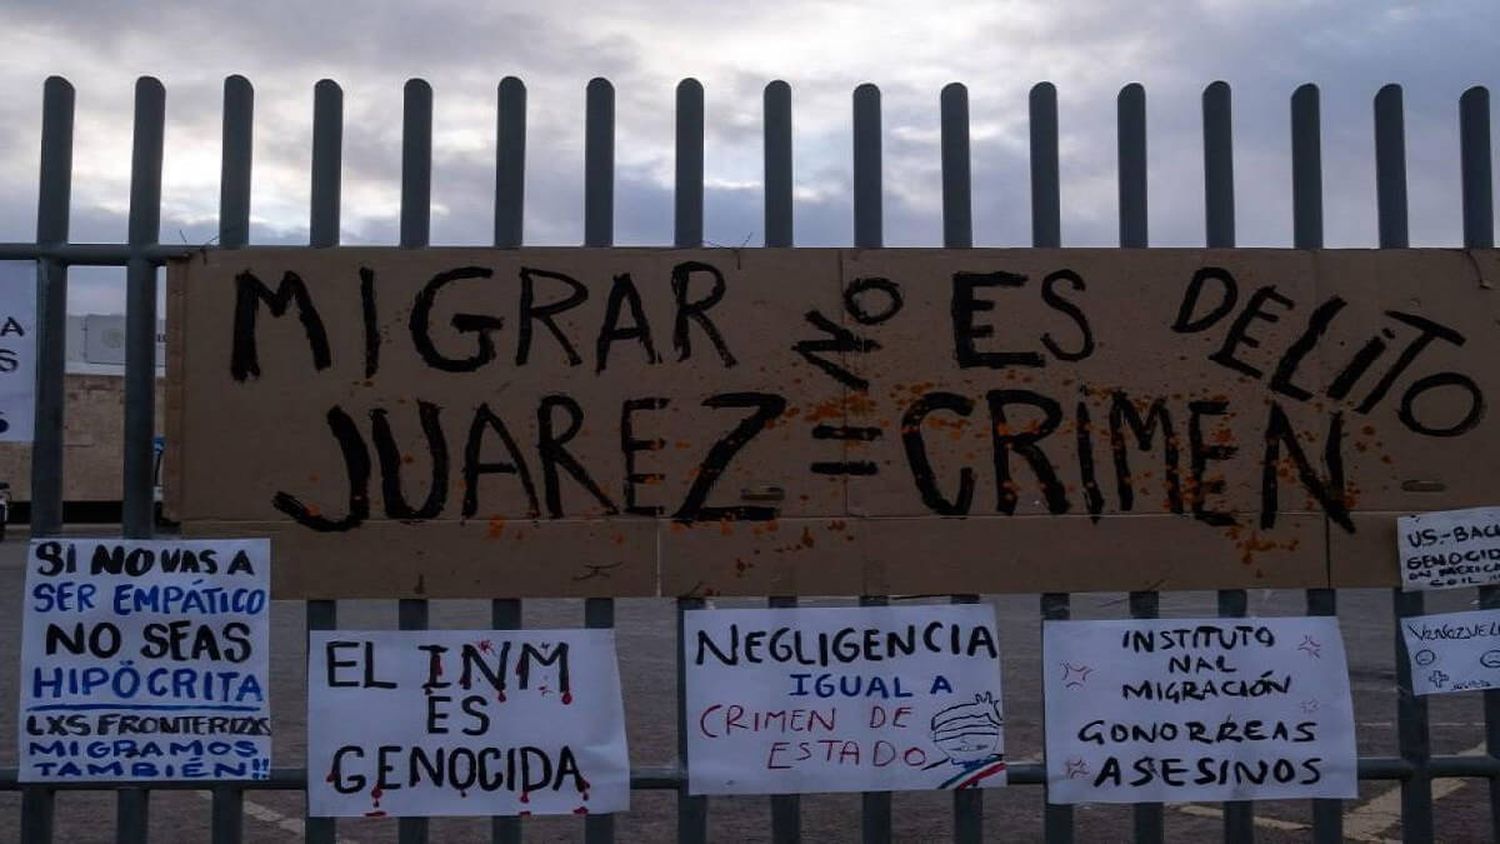 MIGRAR NO ES DELITO
JUAREZ = CRIMEN
A
S
SI NO VAS A
SER EMPÁTICO
NO SEAS
HIPÓCRITA
LXS FRONTERIZXS
MIGRAMOS
TAMBIÉN!!
EL INM
ES
GENOCIDA
NEGLIGENCIA
IGUAL A
CRIMEN DE
ESTADO
INSTITUTO
NAL
MIGRACIÓN
GONORREAS
ASESINOS
US.-BACK
GENOCID
ON MEXICA
SOIL !!!
VENEZUEL